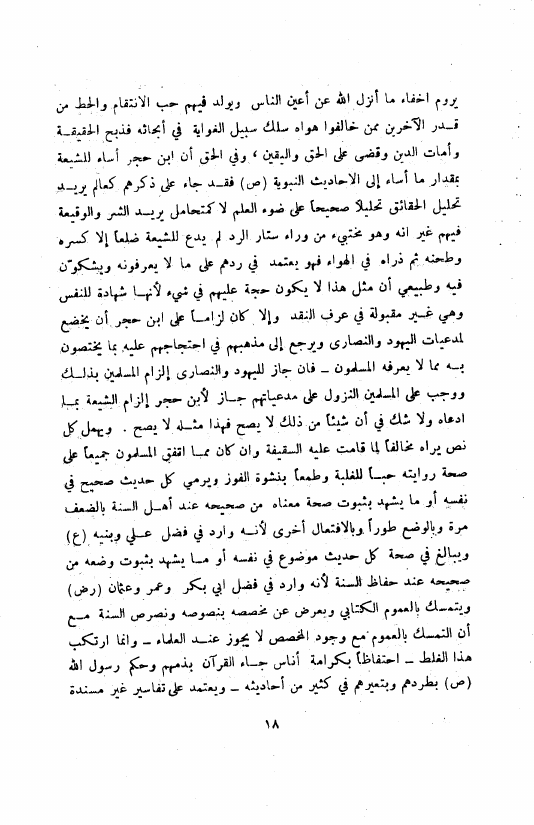 يروم اخفاء ما أنزل الله عن أعين الناس ويولد فيهم حب الانتقام والحط من
قـدر الآخرين ممن خالفوا هواه سلك سبيل الغواية في أبحاثه فذبح الحقيقـة
وأمات الدين وقضى على الحق واليقين ، وفي الحق أن ابن حجر أساء للشيعة
بمقدار ما أساء إلى الاحاديث النبوية (ص) فقـد جاء على ذكرهم كعالم يريـد
تحليل الحقائق تحليلاً صحيحاً على ضوء العلم لا كمتحامل يريـد الشر والوقيعة
فيهم غير انه وهو مختبيء من وراء ستار الرد لم يدع للشيعة ضلعاً إلا كسره
وطحنه ثم ذراه في الهواء فهو يعتمد في ردهم على ما لا يعرفونه ويشكوّن
فيه وطبيعي أن مثل هذا لا يكون حجة عليهم في شيء لأنهـا شهادة للنفس
وهي غـير مقبولة في عرف النقد وإلا كان لزامـاً على ابن حجر أن يخضع
لمدعيات اليهود والنصارى ويرجع إلى مذهبهم في احتجاجهم عليه بما يختصون
بـه مما لا يعرفه المسلمون ــ فان جاز لليهود والنصارى إلزام المسلمين بذلـك
ووجب على المسلمين النزول على مدعياتهم جـاز لأبن حجر إلزام الشيعة بمـا
ادعاه ولا شك في أن شيئاً من ذلك لا يصح فهذا مثـله لا يصح . ويهمل كل
نص يراه مخالفاً لما قامت عليه السقيفة وان كان ممـا اتفق المسلمون جميعاً على
صحة روايته حبـاً للغلبة وطمعاً بنشوة الفوز ويرمي كل حديث صحيح في
نفسه أو ما يشهد بثبوت صحة معناه من صحيحه عند أهـل السنة بالضعف
مرة وبالوضع طوراً وبالافتعال أخرى لأنـه وارد في فضل عـلي وبنيه (ع)
ويبالغ في صحة كل حديث موضوع في نفسه أو مـا يشهد بثبوت وضعه من
صحيحه عند حفاظ السنة لأنه وارد في فضل ابي بكر وعمر وعثمان (رض)
ويتمسك بالعموم الكتابي ويعرض عن مخصصه بنصوصه ونصرص السنة مـع
أن التمسك بالعموم مع وجود المخصص لا يجوز عنـد العلماء ــ وانما ارتكب
هذا الغلط ــ احتفاظاً بكرامة أناس جـاء القرآن بذمهم وحكم رسول الله
(ص) بطردهم وبتعيرهم في كثير من أحاديثه ــ ويعتمد على تفاسير غير مسندة
١٨